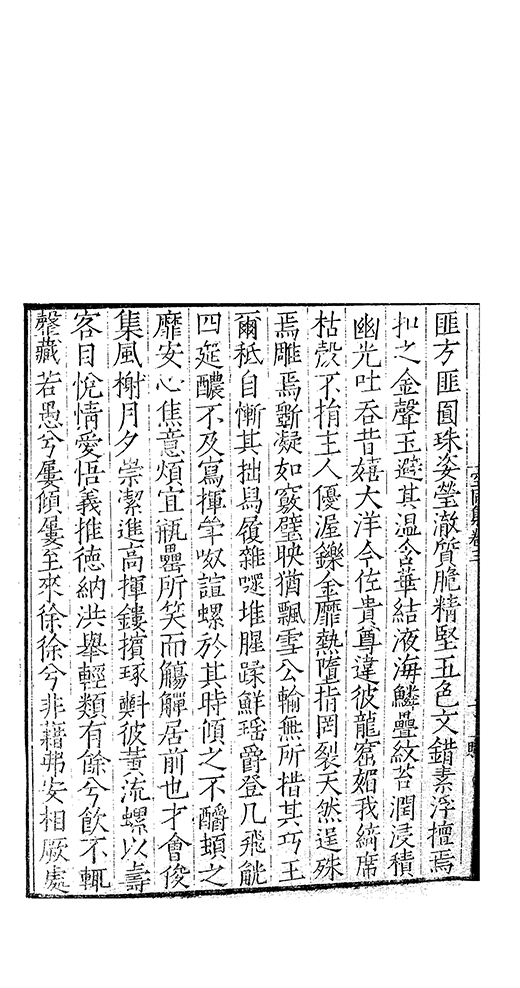 匪方匪圓珠姿瑩澈質脆精堅五色文錯素浮檀焉
扣之金聲玉避其温含華結液海鱗疊紋苔潤浸積
幽光吐吞昔嬉大洋今佐貴尊違彼龍窟媚我綺席
枯殻不捐主人優渥鑠金靡熱墮指罔裂天然逞殊
焉雕焉斲凝如竅璧映猶飄雪公輸無所措其巧王
爾秪自慚其拙舄履雜嗹堆腥蹂鮮瑶爵登几飛觥
四筵醲不及寫揮竿呶諠螺於其時傾之不醻頓之
靡安心焦意煩宜瓶罍所笑而觴觶居前也才會俊
集風榭月夕崇潔進高揮鏤擯琢㪺彼黄流螺以壽
客目悅情愛悟義推德納洪舉輕類有餘兮飲不輒
罄藏若愚兮屢傾屢至來徐徐兮非藉弗安相厥處